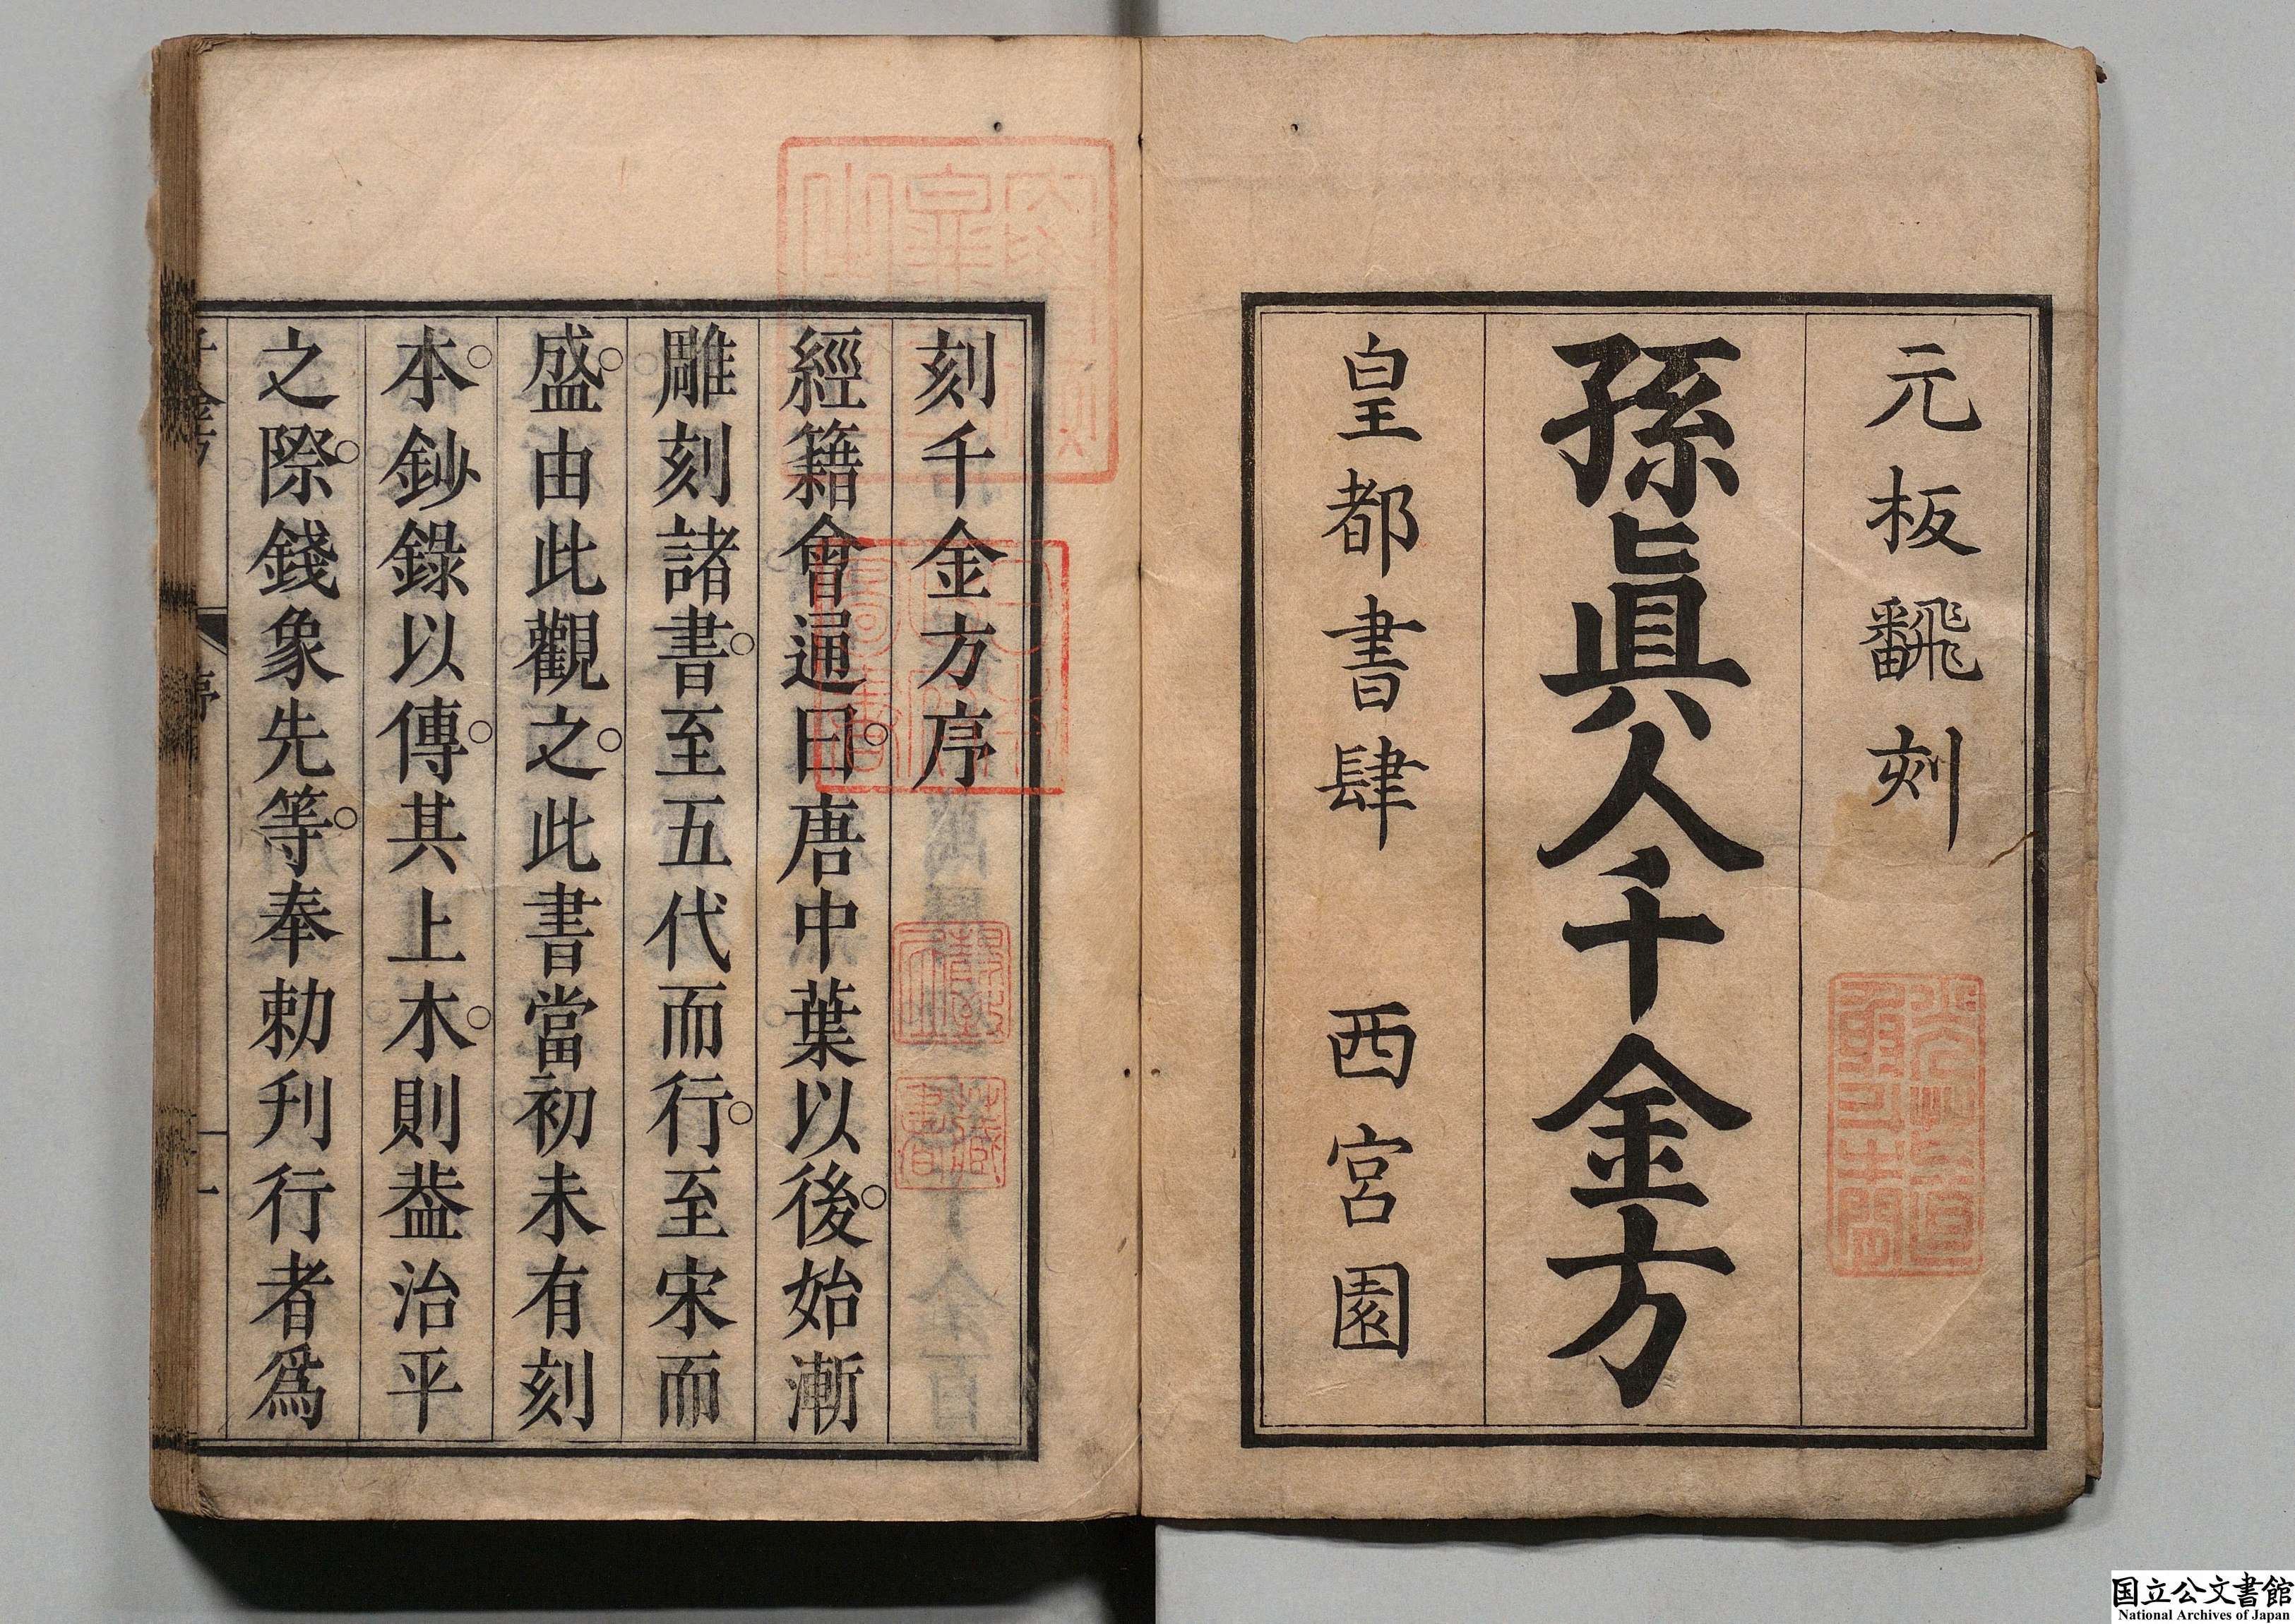 元板飜刻
孫眞人千金方
皇都書肆 西宮園
刻千金方序
經籍會通曰唐中葉以後始漸
雕刻諸書至五代而行至宋而
盛由此觀之此書當初未有刻
本鈔錄以傳其上木則葢治平
之際錢象先等奉勅刋行者爲
国立公文書館
National Archives of Japan